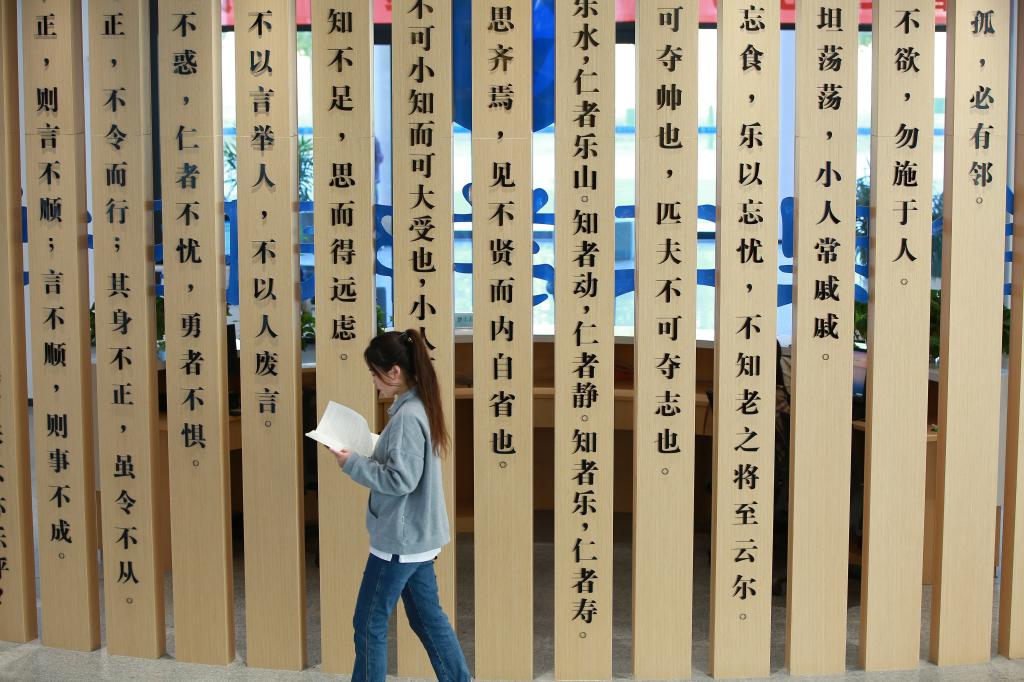 正，则言不顺；言不顺，则事不成。
正，不令而行；其身不正，虽令不从。
不惑，仁者不忧，勇者不惧。
不以言举人，不以人废言。
知不足，思而得远虑。
不可小知而可大受也，小人
思齐焉，见不贤而内自省也。
乐水，仁者乐山。知者动，仁者静。知者乐，仁者寿。
可夺帅也，匹夫不可夺志也。
忘食，乐以忘忧，不知老之将至云尔。
坦荡荡，小人常戚戚。
不欲，勿施于人。
孤，必有邻。